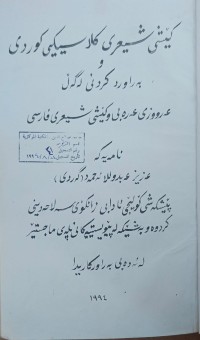 کێشی شیعری کلاسیکی کوردی
و
بەراورد کردنی لەگەڵ
عەرووزی عەرەبی و کێشی شیعری فارسی
نامەیەکە
عەزیز عەبدوڵلا ئەحمەد (گەردی)
پێشکەشی کۆلێجی ئادابی زانکۆی سەلاحەدینی
کردووە و بەشێکە لە پێویستیەکانی پلەی ماجستێر
لە ئەدەبی بەراوردکاریدا
١٩٩٤